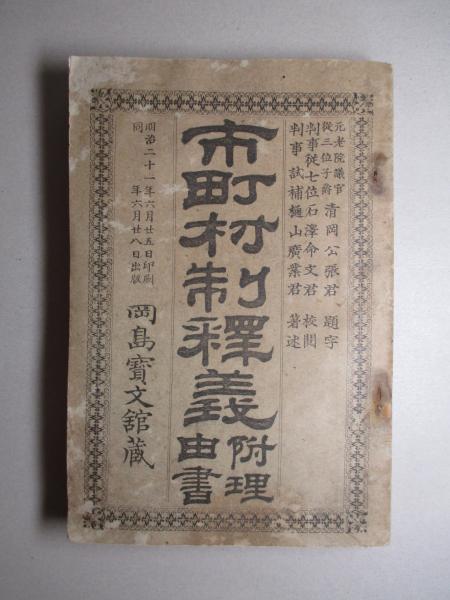 元老院議官
從三位子爵 清岡公張君 題字
判事從七位石澤命文君 校閲
判事試補樋山廣業君 著述
市町村制釋義 附理由書
明治二十一年六月廿五日印刷
同 年六月廿八日出版
岡島寳文舘藏